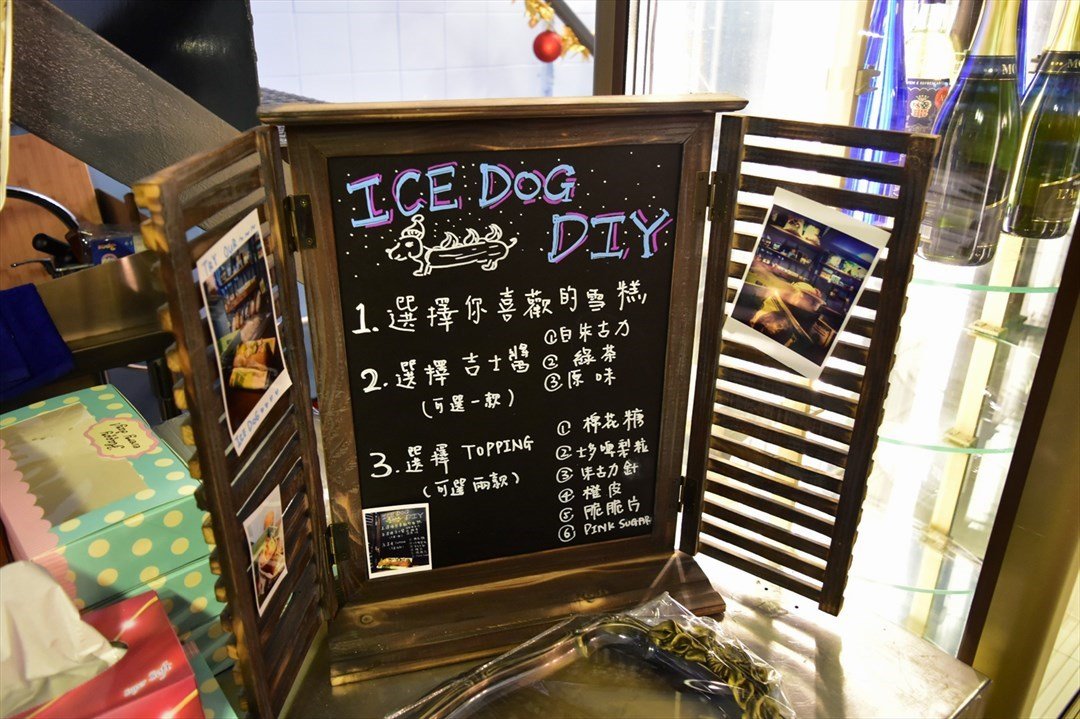 ICE DOG
DIY
1. 選擇你喜歡的雪糕
2. 選擇吉士醬
(可選一款)
①白朱古力
② 綠茶
③原味
3. 選擇 TOPPING
(可選兩款)
① 棉花糖
②士多啤梨粒
③朱古力針
④ 橙皮
⑤ 脆脆片
⑥ PINK SUGAR
TRY OUR~~~
ICE DOG
ICE DOG
Super Soft